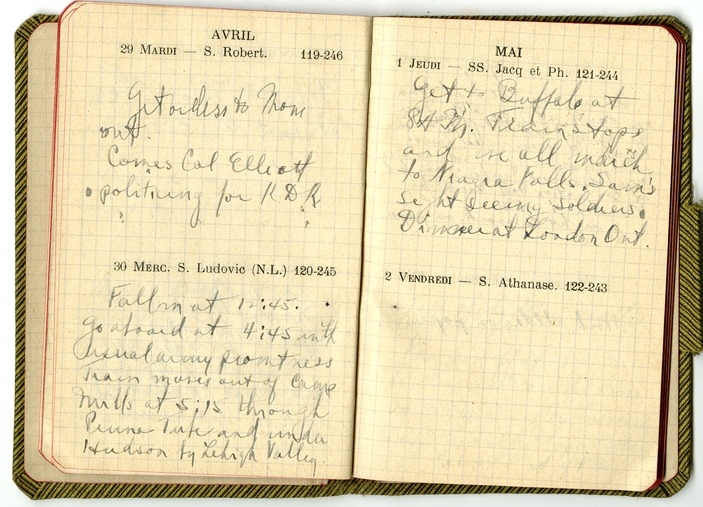 AVRIL
29 MARDI — S. Robert. 119-246
Get orders to Move
out.
Comes Col Elliott
politicing for R D R
30 MERC. S. Ludovic (N.L.) 120-245
Fall in at 12:45.
Go aboard at 4:45 with
usual army promtness
Train moves out of Camp
Mills at 5:15 through
Penna Tube and under
Hudson by Lehigh Valley.
MAI
1 JEUDI — SS. Jacq et Ph. 121-244
Get to Buffalo at
8 A.M. Train stops
and we all march
to Niagra Falls. Sam's
Sight Seeing Soldiers.
Dinner at London Ont.
2 VENDREDI — S. Athanase. 122-243